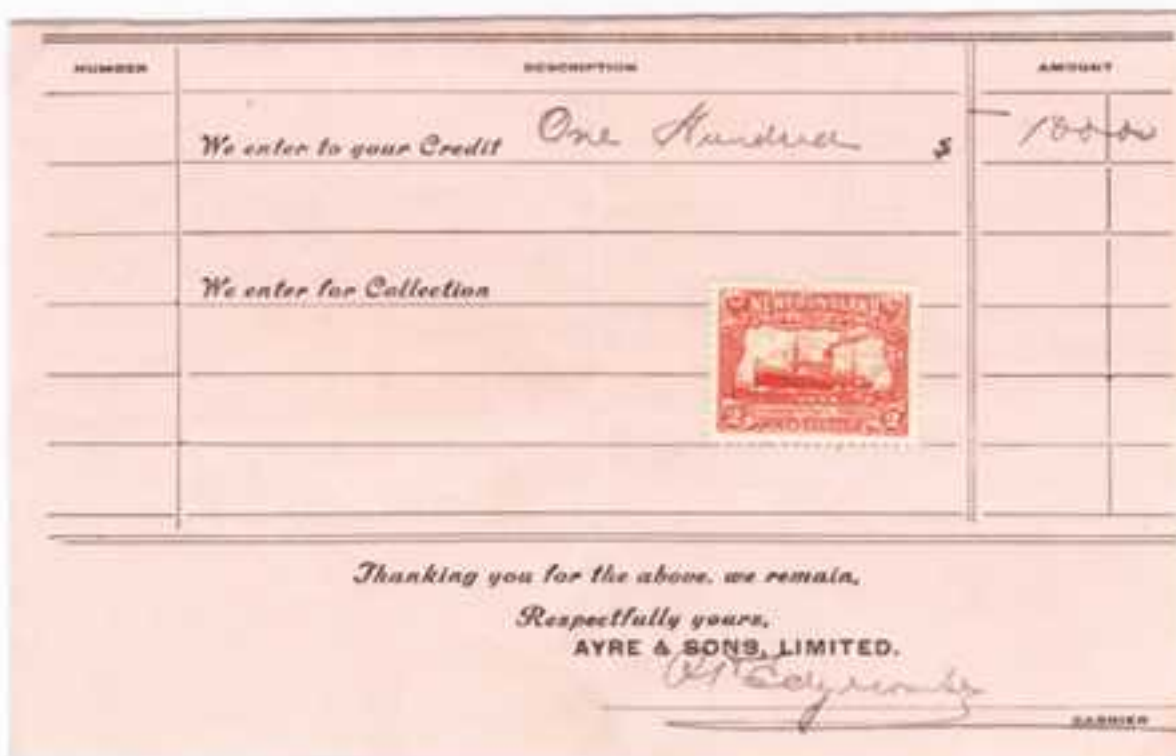 NUMBER DESCRIPTION AMOUNT
We enter to your Credit One Hundred $ 100 00
We enter for Collection
NEWFOUNDLAND
2 2
Thanking you for the above, we remain,
Respectfully yours,
AYRE & SONS, LIMITED.
Edgecombe
CASHIER